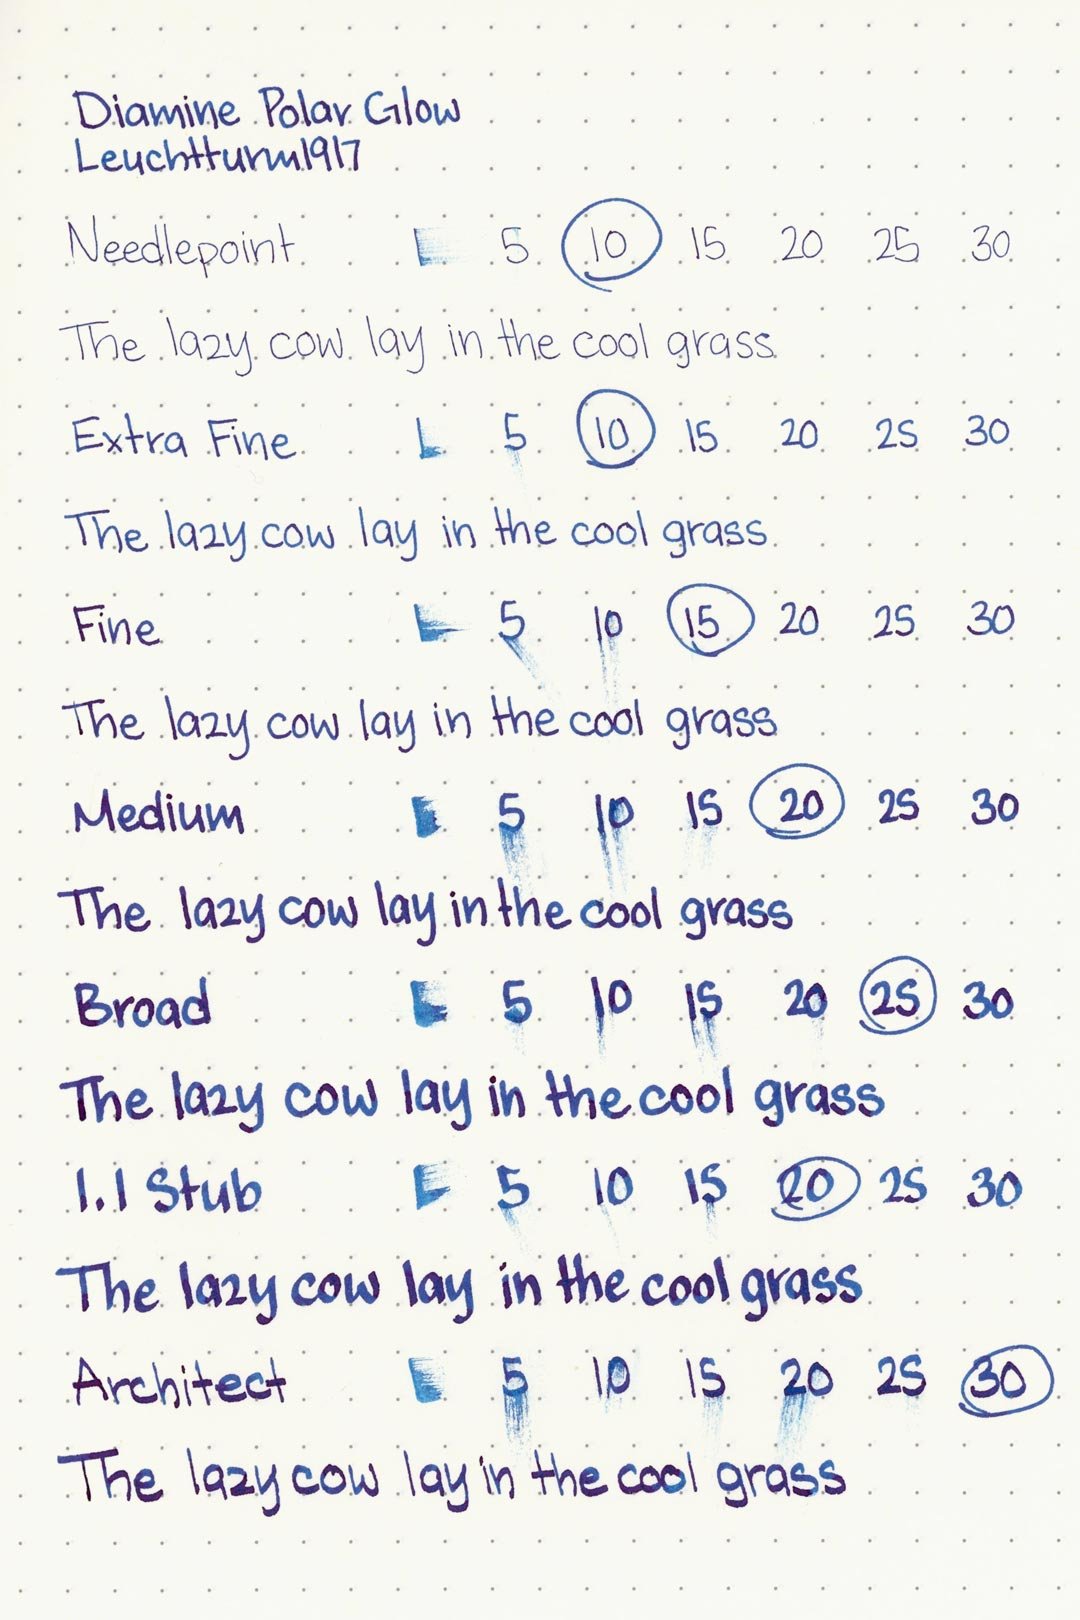 Diamine Polar Glow
Leuchtturm1917
Needlepoint L 5 10 15 20 25 30
The lazy cow lay in the cool grass
Extra Fine L 5 10 15 20 25 30
The lazy cow lay in the cool grass
Fine L 5 10 15 20 25 30
The lazy cow lay in the cool grass
Medium 5 10 15 20 25 30
The lazy cow lay in the cool grass
Broad 5 10 15 20 25 30
The lazy cow lay in the cool grass
1.1 Stub 5 10 15 20 25 30
The lazy cow lay in the cool grass
Architect 5 10 15 20 25 30
The lazy cow lay in the cool grass